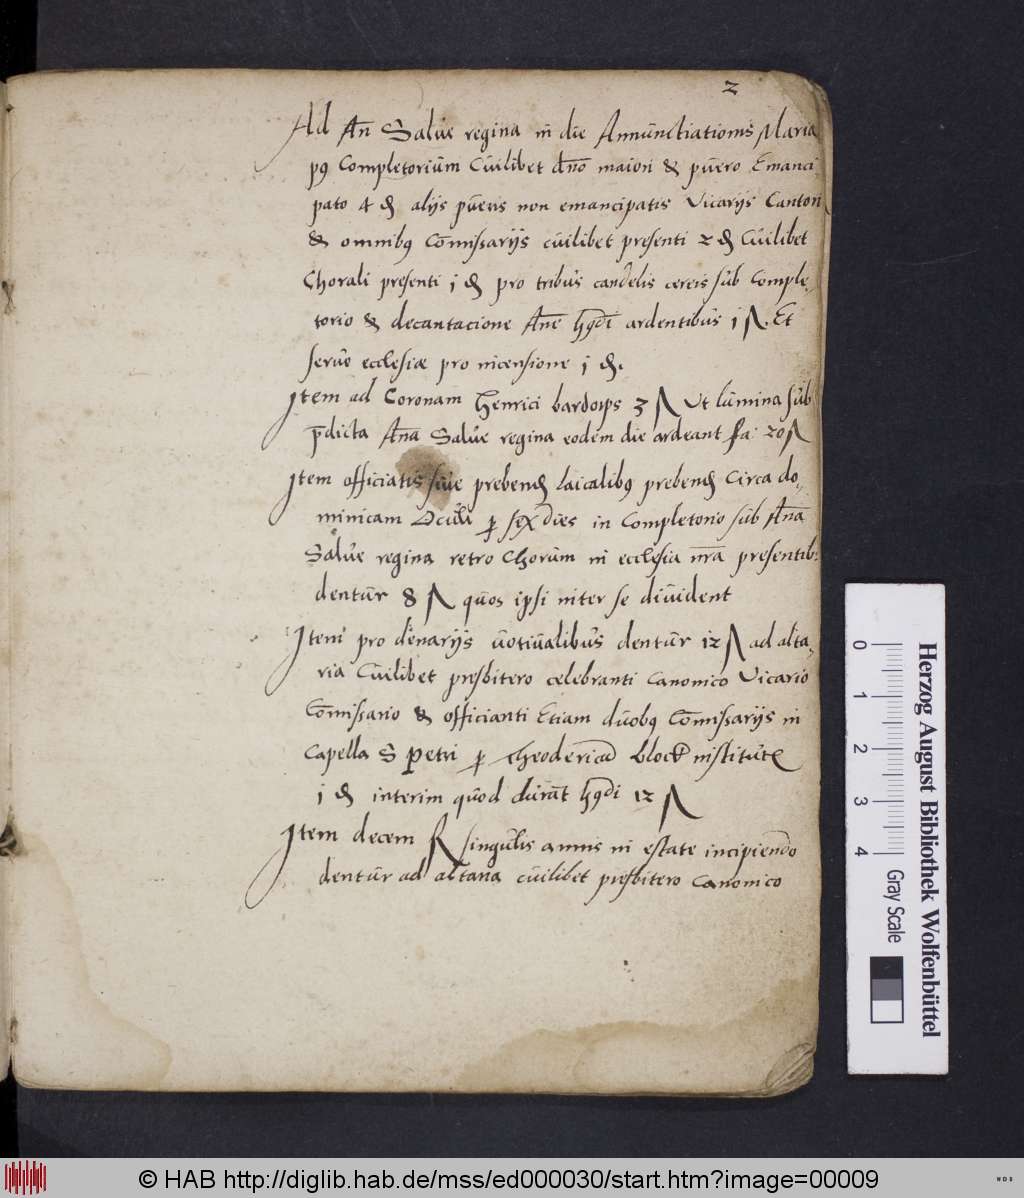 2
Ad An Salue regina in die Annunctiationis Maria
p9 Completorium Cuilibet dno maiori & puero Emanci
pato 4 ₰ alijs pueris non emancipatis Vicarijs Cantori
& omnib9 Comissarijs cuilibet presenti 2 ₰ Cuilibet
Chorali presenti j ₰ pro tribus candelis cereis sub Comple
torio & decantacione Ane ardentibus j ß. Et
seruo ecclesiæ pro incensione j ₰.
Item ad Coronam Henrici bardorps 3 ß Ut lumina sub
pdicta Ana Salue regina eodem die ardeant fa: 20 ß
Item officiatis siue prebend laicalib9 prebend Circa do-
minicam Oculi p sex dies in Completorio sub Ana
Salue regina retro Chorum in ecclesia nra presentib:
dentur 8 ß quos ipsi inter se diuident
Item pro denarijs uotiualibus dentur 12 ß ad alta-
ria Cuilibet presbitero celebranti Canonico Vicario
Comissario & officianti Etiam duob9 Comissarijs in
Capella S Petri p theodericu block institut
j ₰ interim quod durat 12 ß
Item decem singulis annis in estate incipiendo
dentur ad altaria cuilibet presbitero Canonico
Herzog August Bibliothek Wolfenbüttel
0 1 2 3 4
Gray Scale
© HAB http://diglib.hab.de/mss/ed000030/start.htm?image=00009